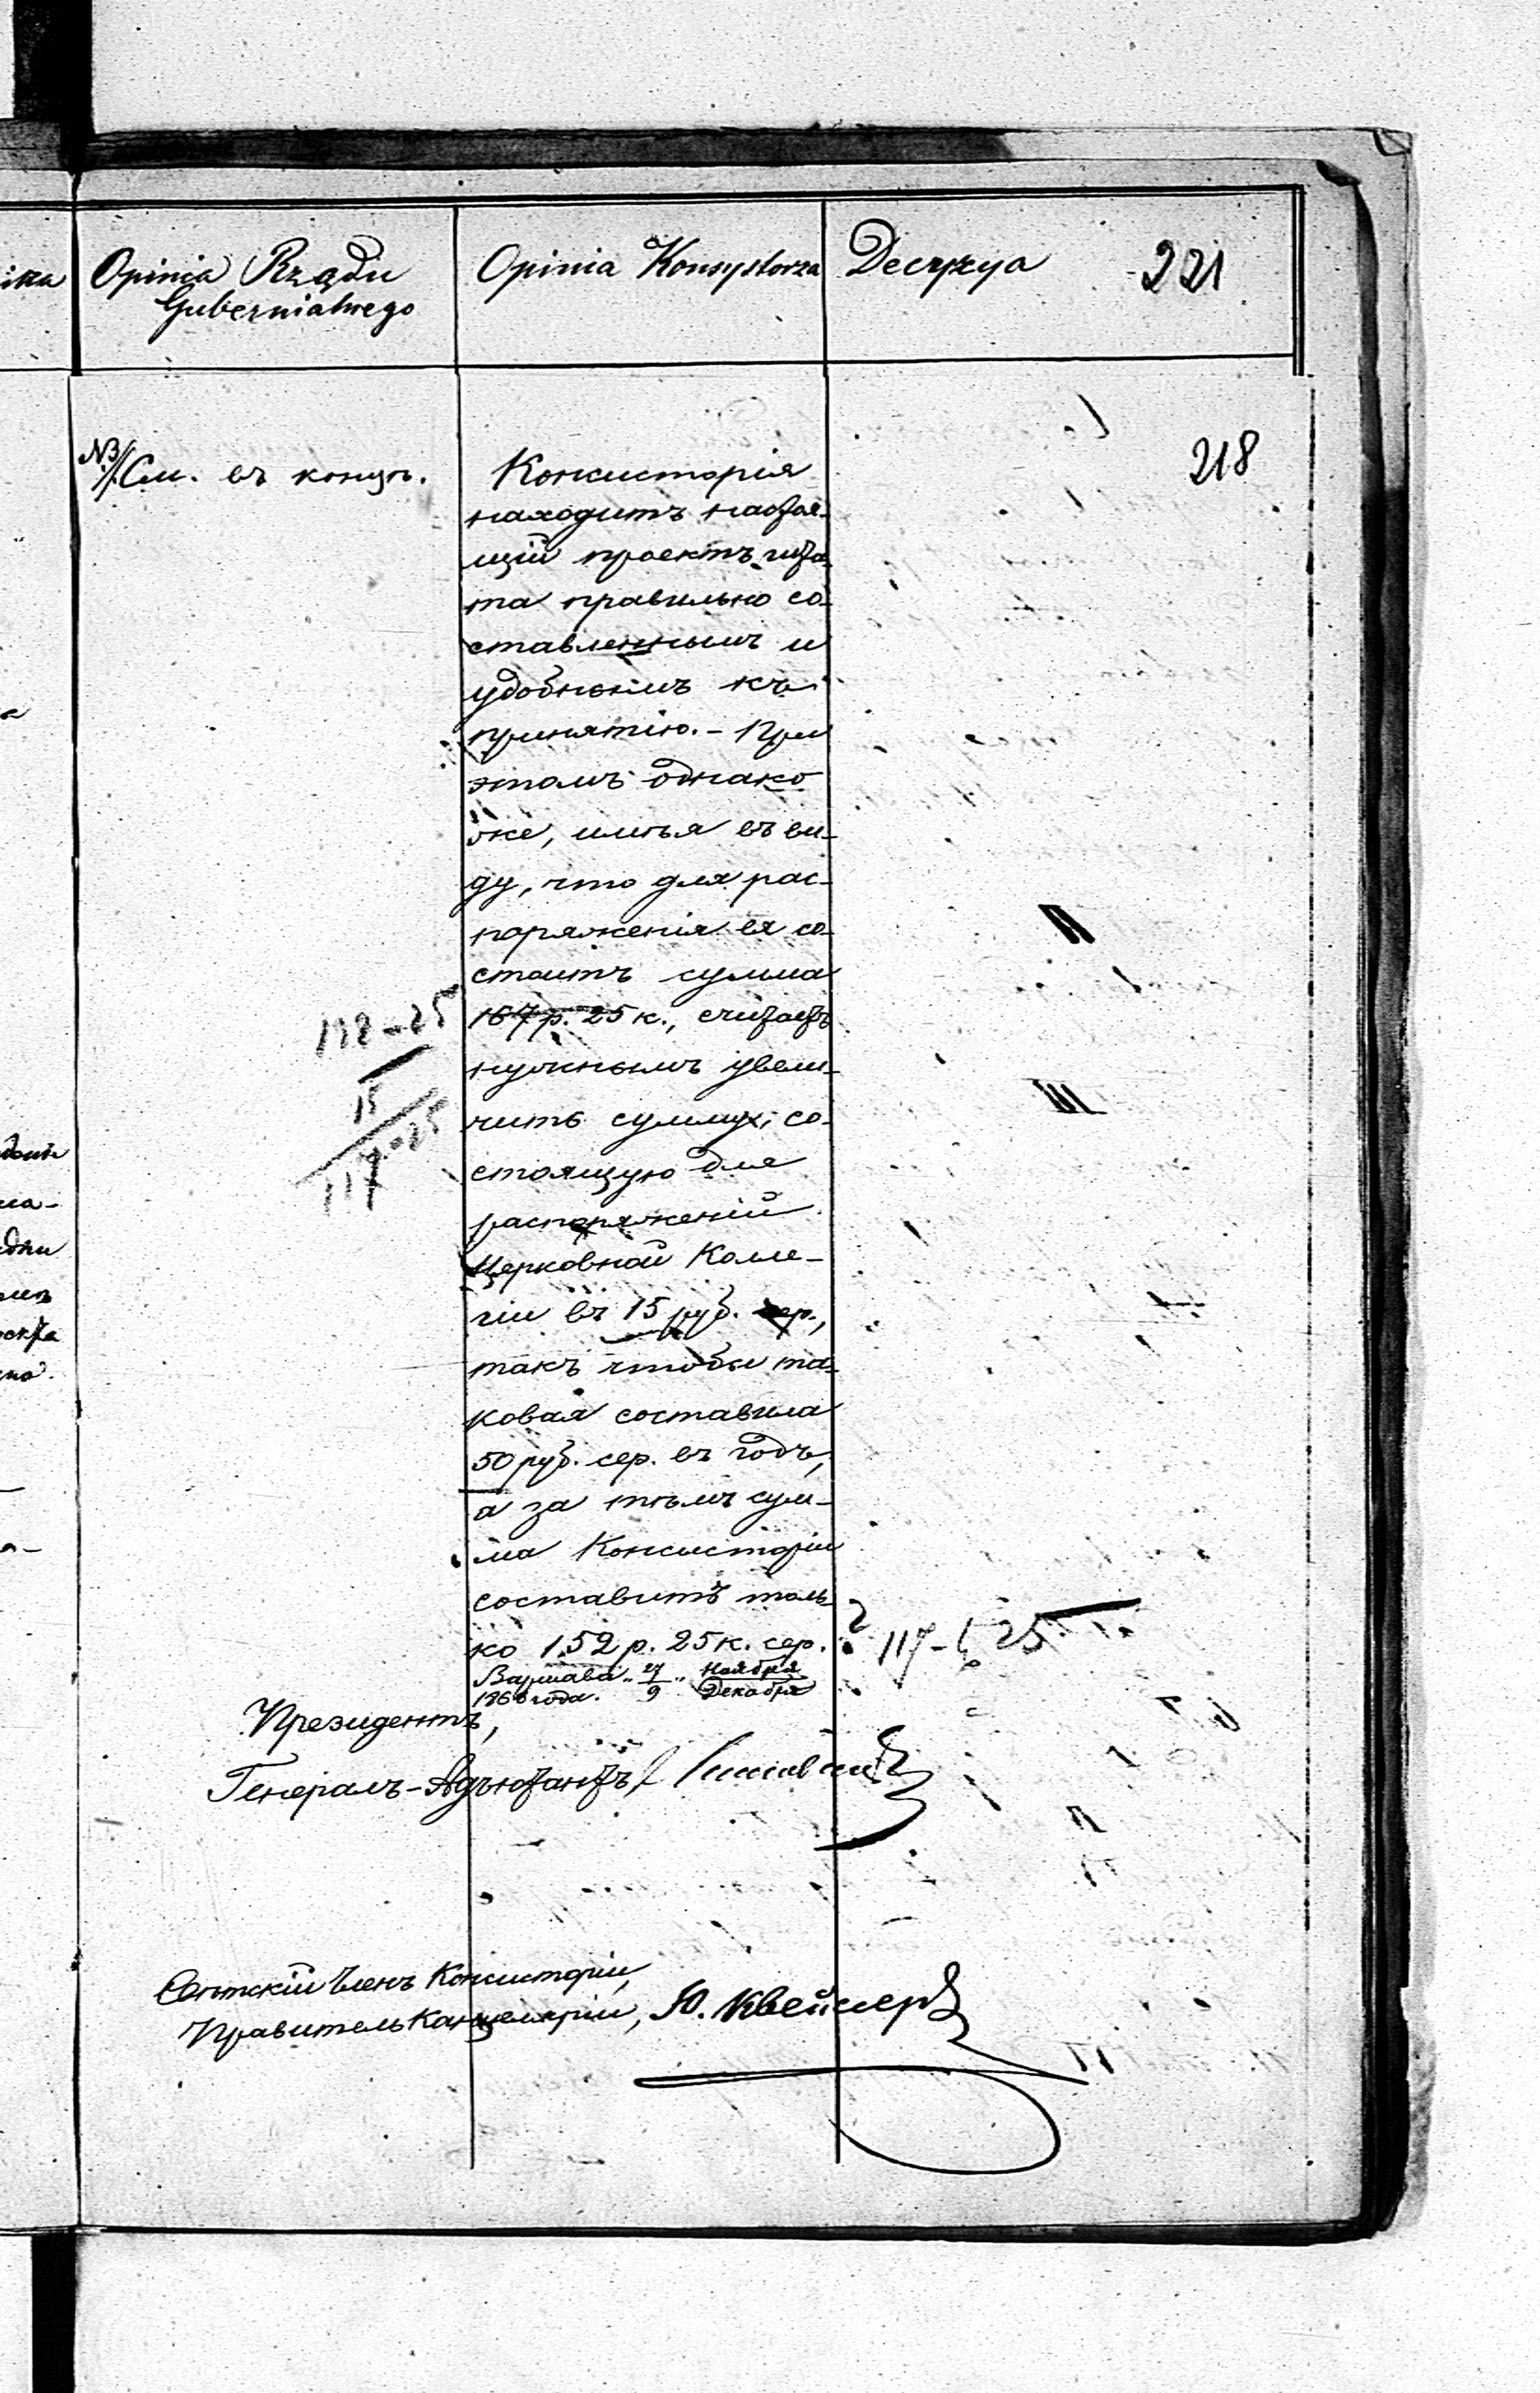 Opinia Rządu
Gubernialnego
Opinia Konsystorza
Decyzya
221
218
NB/ См. въ концѣ.
Консисторія
находитъ настоя-
щій проектъ шта-
та правильно со-
ставленнымъ и
удобнымъ къ
принятію. – При
этомъ однако
же, имѣя въ ви-
ду, что для рас-
поряженія ея со-
стоитъ сумма
167 р. 25 к., считаетъ
нужнымъ увели-
чить сумму, со-
стоящую для
распоряженій
Церковной Колле-
гіи въ 15 руб. сер.,
такъ чтобы та-
ковая составила
50 руб. сер. въ годъ,
а за тѣмъ сум-
ма Консисторіи
составитъ толь
ко 152 р. 25 к. сер.
Варшава „27/9“ Ноября/Декабря
1866 года.
132-25
15
117-25
117- 25
Президентъ,
Генералъ-Адъютантъ
Свѣтскій Членъ Консисторіи,
Правитель Канцеляріи, Ю.